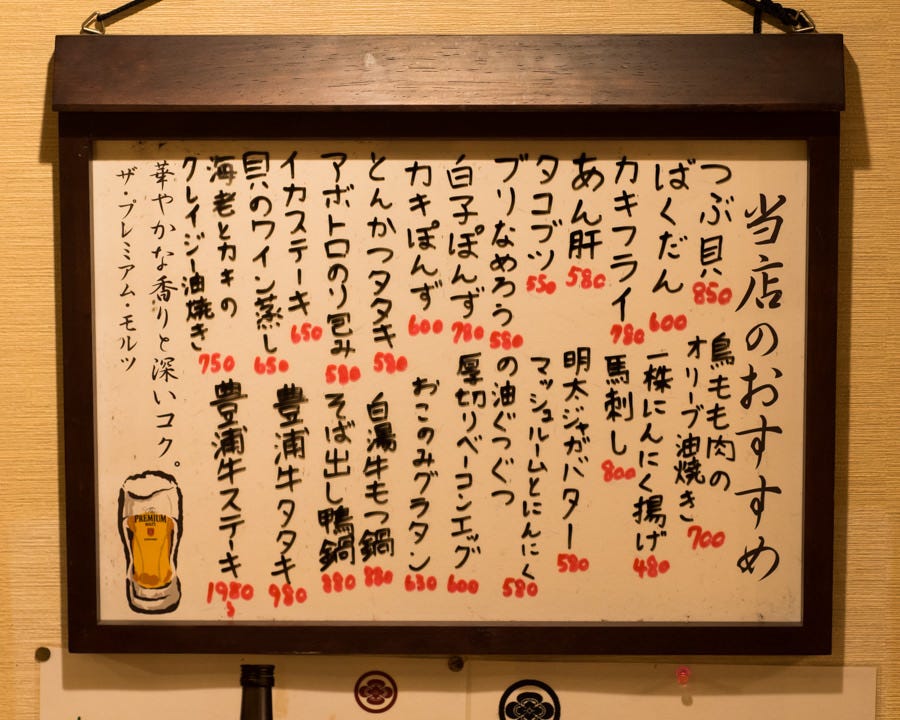 当店のおすすめ
つぶ貝 850
ばくだん 600
カキフライ 780
あん肝 580
タコブツ 550
ブリなめろう 580
白子ぽんず 780
カキぽんず 600
とんかつタタキ 580
アボトロのり包み 580
イカステーキ 650
貝のワイン蒸し 650
海老とカキの
クレイジー油焼き 750
鳥もも肉の
オリーブ油焼き 700
一株にんにく揚げ 480
馬刺し 800
明太ジャガバター 580
マッシュルームとにんにく
の油ぐつぐつ 580
厚切りベーコンエッグ 600
おこのみグラタン 630
白湯牛もつ鍋 880
そば出し鴨鍋 880
豊浦牛タタキ 980
豊浦牛ステーキ 1980
華やかな香りと深いコク。
ザ・プレミアム・モルツ
PREMIUM